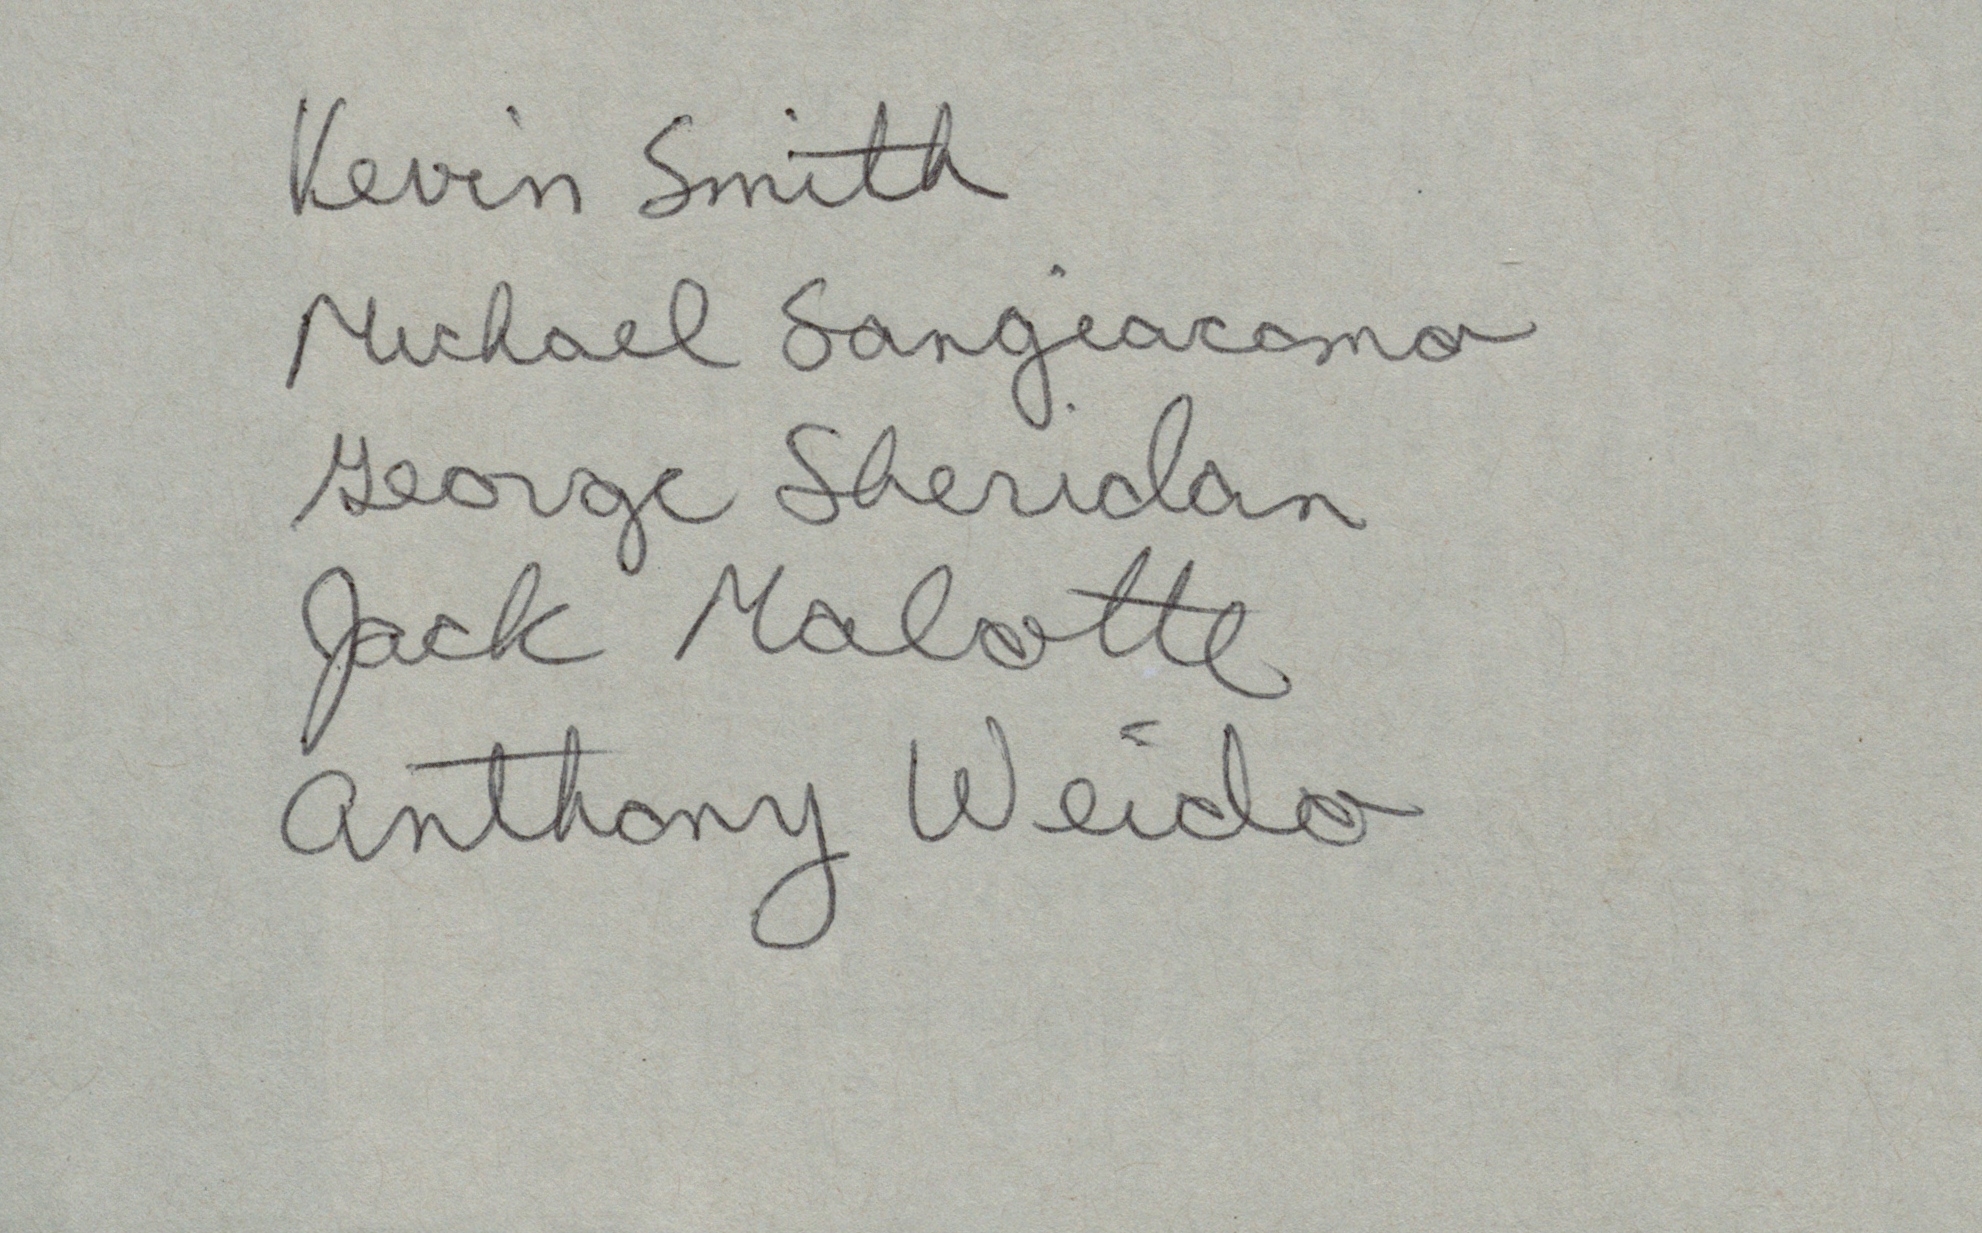 Kevin Smith
Michael Sangiacomo
George Sheridan
Jack Malotte
Anthony Weido